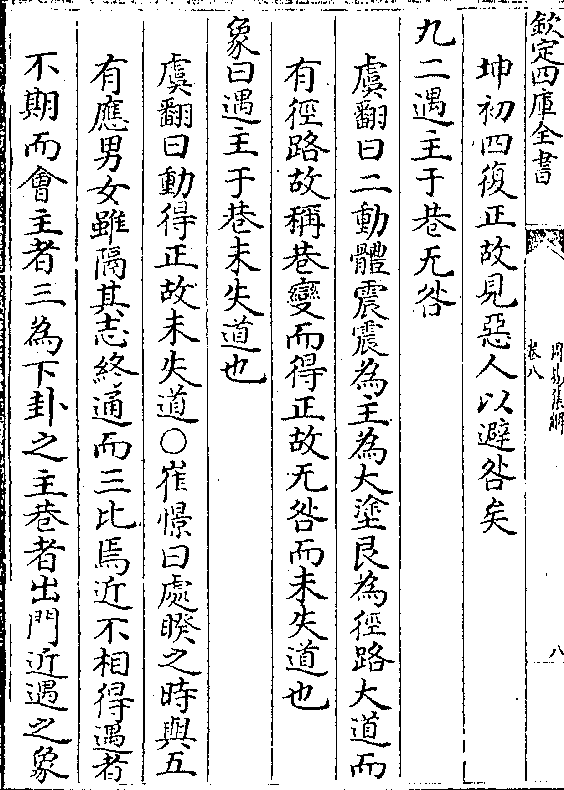 欽定四庫全書
周易集解
卷八
八
坤初四復正故見惡人以避咎矣
九二遇主于巷无咎
虞翻曰二動體震震為主為大塗艮為徑路大道而
有徑路故稱巷變而得正故无咎而未失道也
象曰遇主于巷未失道也
虞翻曰動得正故未失道○崔憬曰處睽之時與五
有應男女雖隔其志終通而三比焉近不相得遇者
不期而會主者三為下卦之主巷者出門近遇之象